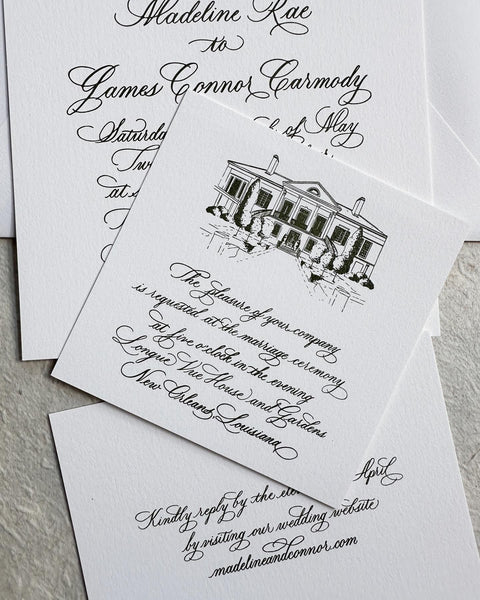 Madeline Rae
to
James Connor Carmody
Saturda of May
Tw
at
The pleasure of your company
is requested at the marriage ceremony
at five o'clock in the evening
Longue Vue House and Gardens
New Orleans, Louisiana
Kindly reply by the ele April
by visiting our wedding website
madelineandconnor.com